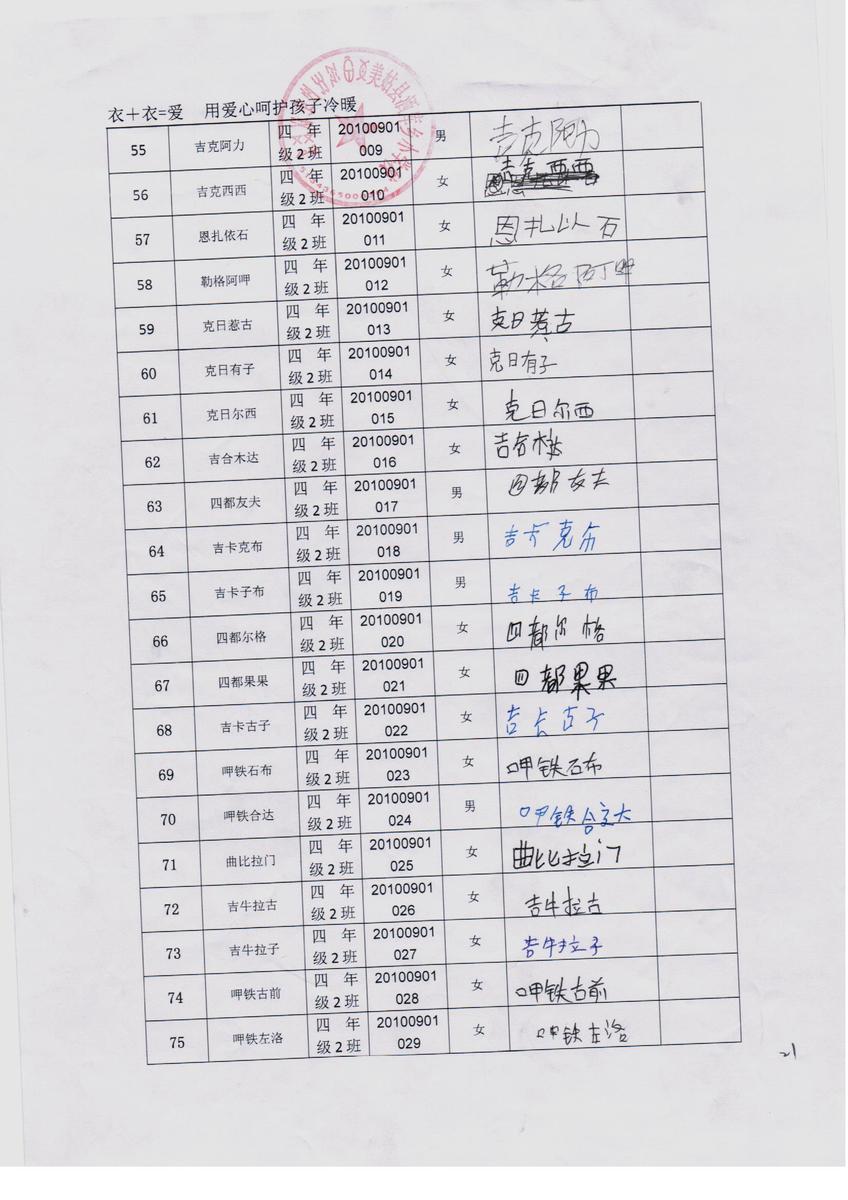 衣＋衣=爱　用爱心呵护孩子冷暖
55 吉克阿力 四年级2班 20100901009 男 吉克阿力
56 吉克西西 四年级2班 20100901010 女 吉克西西
57 恩扎依石 四年级2班 20100901011 女 恩扎以石
58 勒格阿呷 四年级2班 20100901012 女 勒格阿呷
59 克日惹古 四年级2班 20100901013 女 克日惹古
60 克日有子 四年级2班 20100901014 女 克日有子
61 克日尔西 四年级2班 20100901015 女 克日尔西
62 吉合木达 四年级2班 20100901016 女 吉合木达
63 四都友夫 四年级2班 20100901017 男 四都友夫
64 吉卡克布 四年级2班 20100901018 男 吉卡克布
65 吉卡子布 四年级2班 20100901019 男 吉卡子布
66 四都尔格 四年级2班 20100901020 女 四都尔格
67 四都果果 四年级2班 20100901021 女 四都果果
68 吉卡古子 四年级2班 20100901022 女 吉卡古子
69 呷铁石布 四年级2班 20100901023 女 呷铁石布
70 呷铁合达 四年级2班 20100901024 男 呷铁合达
71 曲比拉门 四年级2班 20100901025 女 曲比拉门
72 吉牛拉古 四年级2班 20100901026 女 吉牛拉古
73 吉牛拉子 四年级2班 20100901027 女 吉牛拉子
74 呷铁古前 四年级2班 20100901028 女 呷铁古前
75 呷铁左洛 四年级2班 20100901029 女 呷铁左洛
21